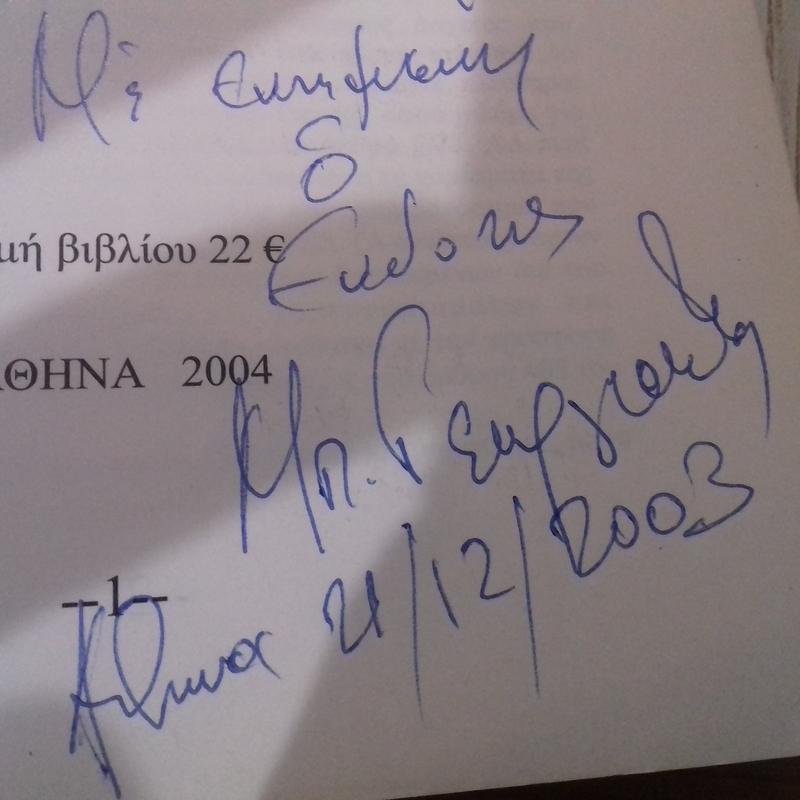 Μὲ εκτίμηση
Ὁ
Εκδότης
μή βιβλίου 22 €
ΑΘΗΝΑ 2004
Μπ.
–1–
Αθήνα 21/12/2003